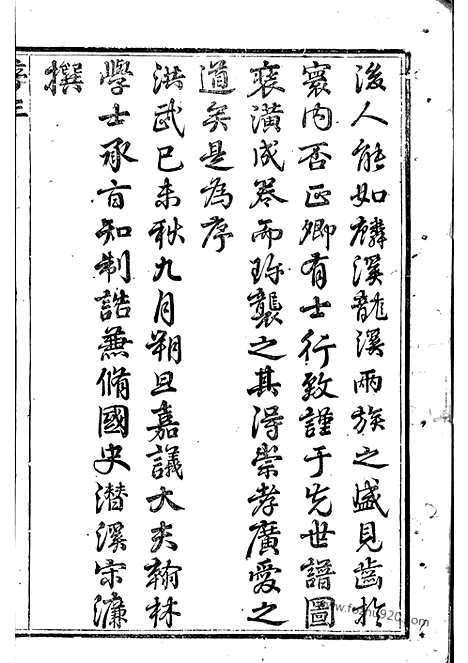 後人能如麟溪龍溪兩族之盛見齒於
寰内否正卿有士行致謹于先世譜圖
裒潢成卷而珎襲之其得崇孝廣愛之
道矣是為序
洪武己未秋九月朔旦嘉議大夫翰林
學士承旨知制誥兼脩國史潛溪宋濂
撰